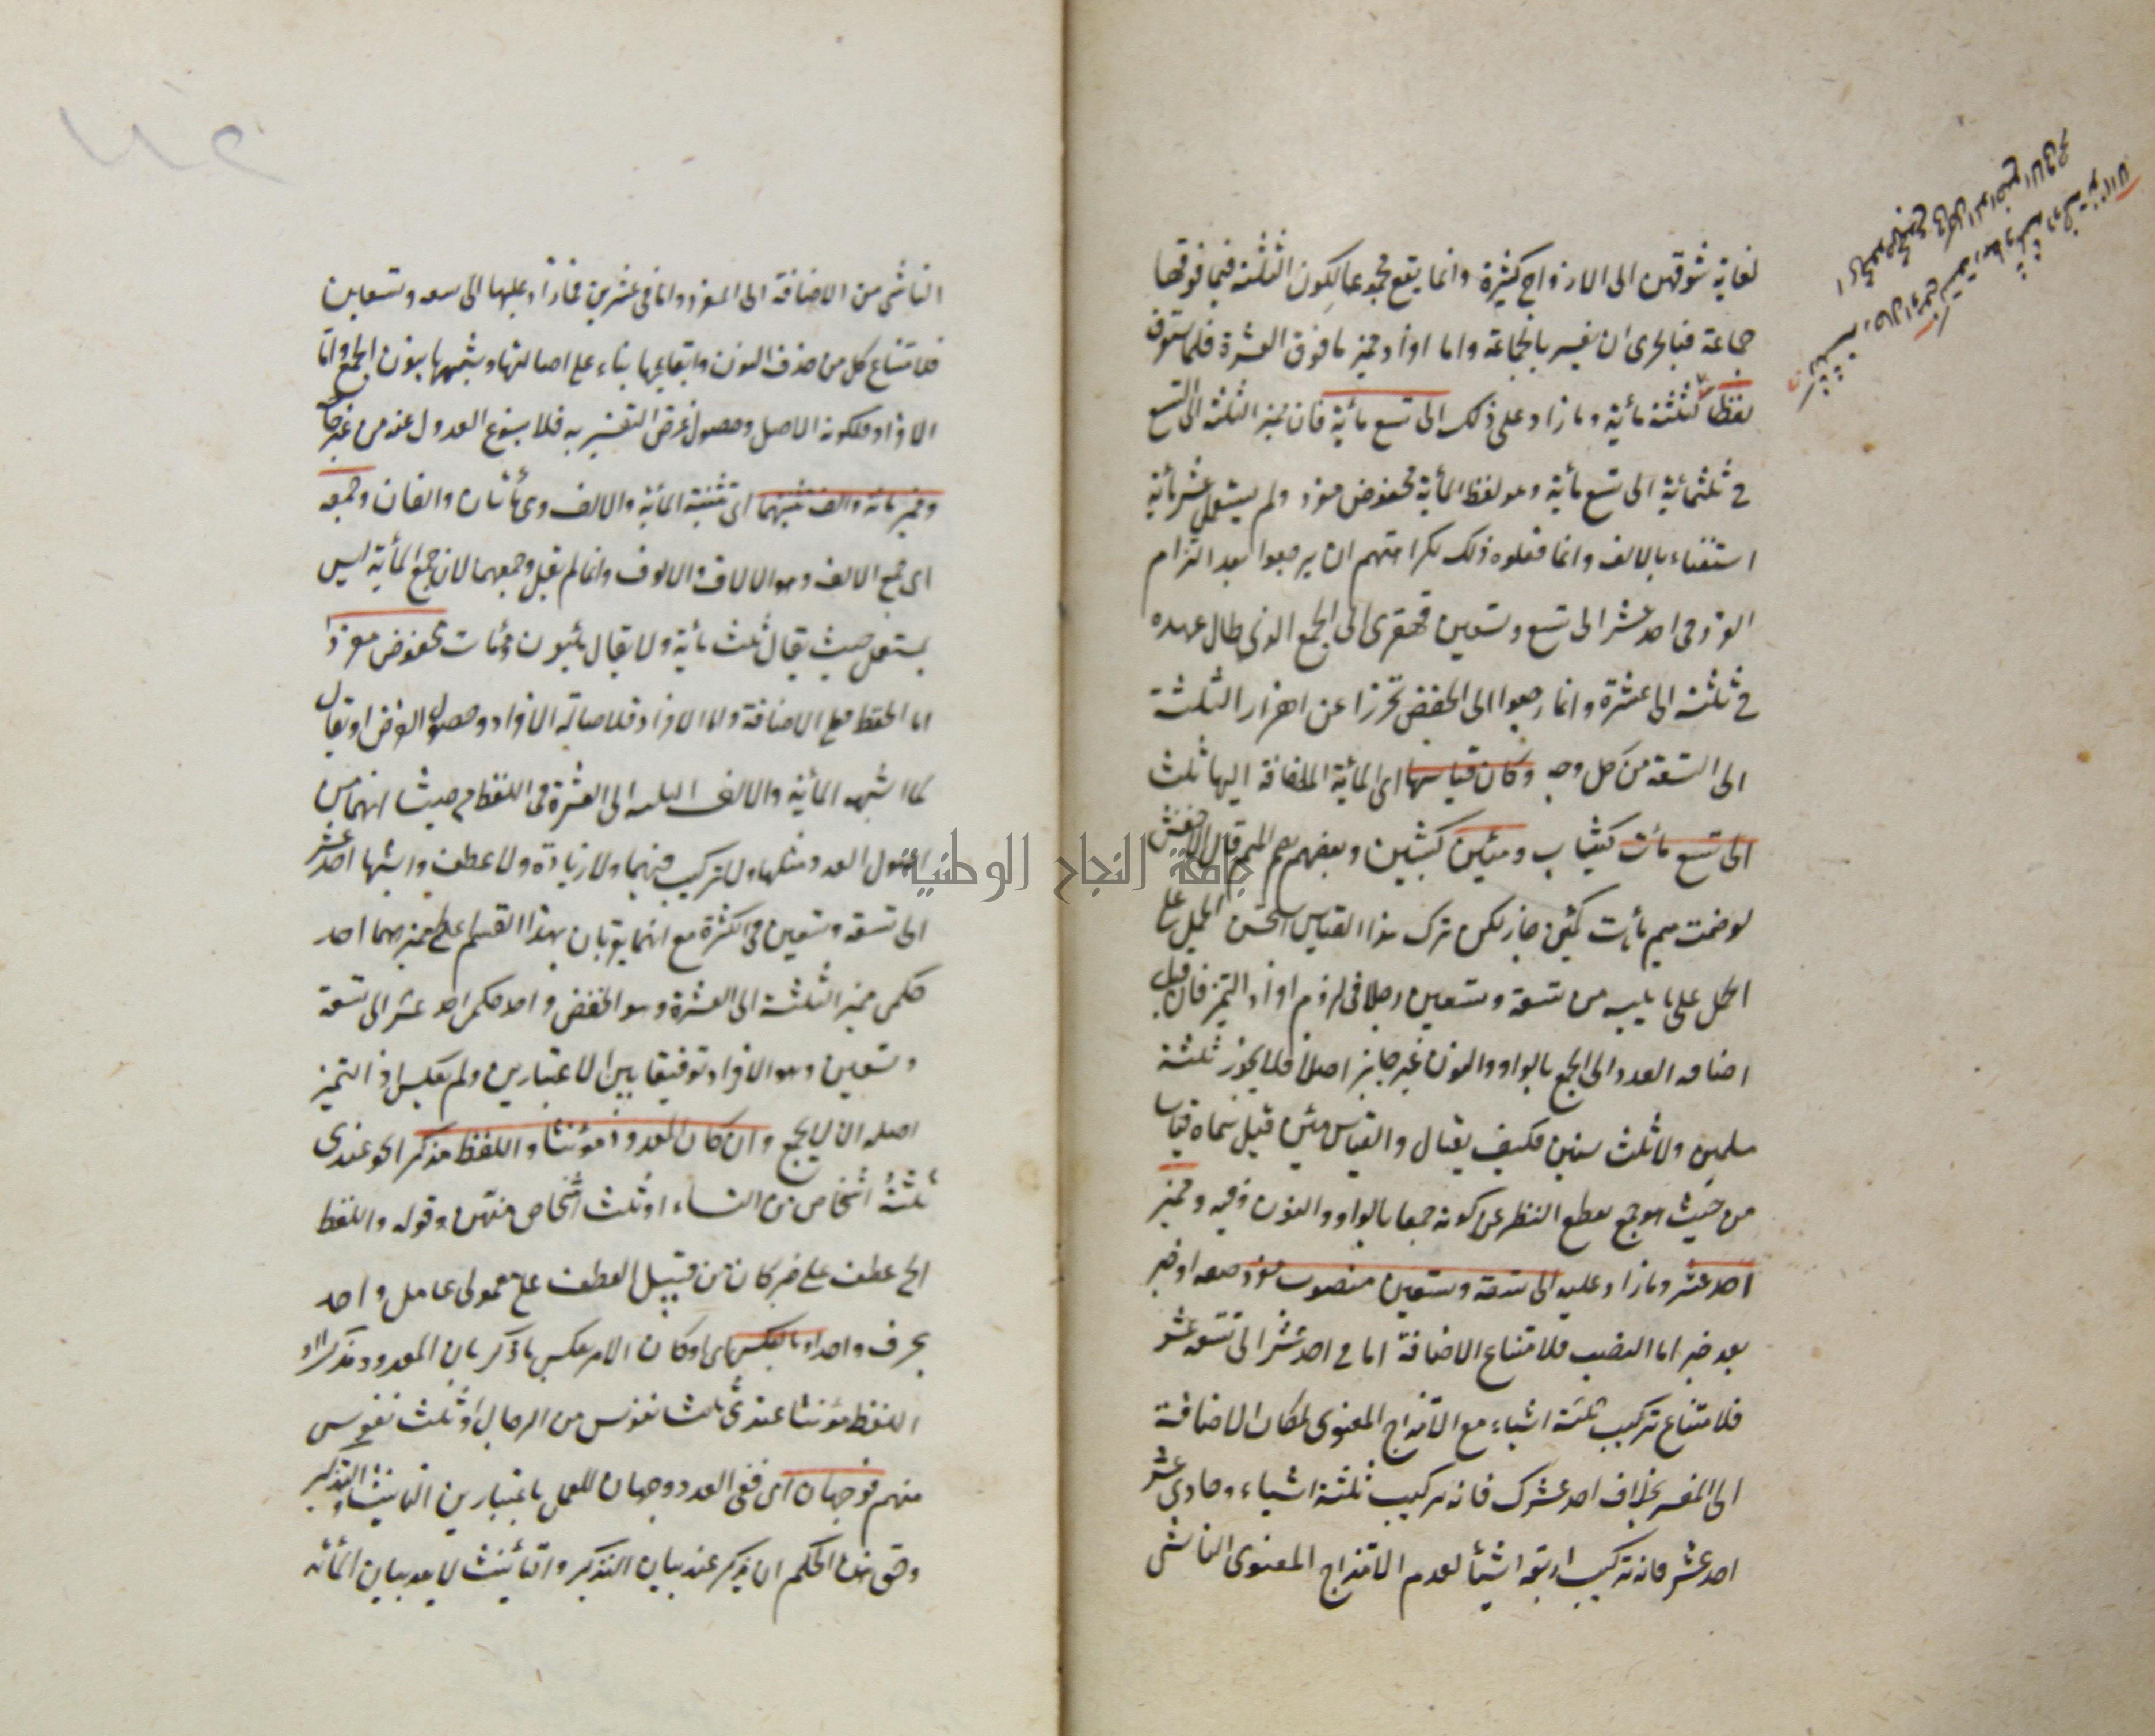 لغاية شوقهن الى الازواج كثيرة وانما يقع مجموعا لكون الثلثة فيما فوقها
جماعة فبالحرى ان يفسر بالجماعة واما افراد مميز ما فوق العشرة فلما ستعرف
لفظا لثلثة مأية وما زاد على ذلك الى تسع مأية فان مميز الثلثة الى التسع
في ثلثمائة الى تسع مأية وهو لفظ المأية مخفوض مفرد ولم يستعمل عشر مأية
استغناء بالالف وانما فعلوه ذلك لكراهتهم ان يرجعوا بعد التزام
المفرد في احد عشر الى تسع وتسعين قهقرى الى الجمع الذي طال عهده
في ثلثة الى عشرة وانما رجعوا الى الخفض تحرزا عن الثلثة
الى التسعة من كل وجه وكان قياسها اى المأية المضافة اليها ثلث
الى تسع مأت كثبات ومئين كثبين وبعضهم يضم الميم قال الاخفش
لو ضمت ميم مأيت كمئين جاز لكن ترك هذا القياس
الكل على ما يليه من تسعة وتسعين رجلا في لزوم افراد التميز فان قيل
اضافة العدد الى الجمع بالواو والنون غير جايز اصلا فلا يجوز ثلثة
مسلمين ولا ثلث سنين فكيف يقال والقياس مئين قيل سماه قياسا
من حيث هو جمع بقطع النظر عن كونه جمعا بالواو والنون فيه ومميز
احد عشر وما زاد عليه الى تسعة وتسعين منصوب مفرد صفة او خبر
بعد خبر اما النصب فلامتناع الاضافة اما في احد عشر الى تسعة عشر
فلامتناع تركيب ثلثة اشياء مع الامتزاج المعنوى لمكان الاضافة
الى المفسر بخلاف احد عشرك فانه تركيب ثلثة اشياء وحادي عشر
احد عشر فانه تركيب اربعة اشيأ لعدم الامتزاج المعنوى الناشى
الناشى من الاضافة الى المفرد واما في عشرين فما زاد عليها الى تسعة وتسعين
فلامتناع كل من حذف النون وابقائها بناء على اصالتها وشبهها بنون الجمع واما
الافراد فلكونه الاصل وحصول غرض التفسير به فلا يسوغ العدول عنه من غير حاجة
ومميز مائة والف وتثنيتهما اى تثنية المأية والالف وهى مأتان والفان وجمعه
اى جمع الالف وهو الالاف والالوف وانما لم يقل وجمعهما لان جمع المأية ليس
بمستعمل حيث يقال ثلث مأية ولا يقال مئيون ومئات مخفوض مفرد
اما الخفض فعلى الاضافة واما الافراد فلاصالة الافراد وحصول الغرض او يقال
لما اشبه المأية والالف الثلثة الى العشرة في اللفظ من حيث انهما من
اصول العدد مثلها ولا تركيب فيهما ولا زيادة ولا عطف واشبها احد عشر
الى تسعة وتسعين في الكثرة مع انهما يقربان بهذا القسم اعطى مميزهما احد
حكمى مميز الثلثة الى العشرة وهو الخفض واحد حكمى احد عشر الى تسعة
وتسعين وهو الافراد توفيقا بين الاعتبارين ولم يعكس اذ التميز
اصله ان لا يجمع وان كان المعدود مؤنثا واللفظ مذكرا نحو عندى
ثلثة اشخاص من النساء او ثلث اشخاص منهن وقوله واللفظ
الخ عطف على خبر كان من قبيل العطف على معمولى عامل واحد
بحرف واحد او بالعكس اى او كان الامر بعكس ما ذكر بان المعدود مذكرا او
اللفظ مؤنثا عندى ثلث نفوس من الرجال او ثلث نفوس
منهم فوجهان اى ففي العدد وجهان للعمل باعتبارين التانيث والتذكير
وحق هذا الحكم ان يذكر عند بيان التذكير والتأنيث لا بعد بيان المأئة
جامعة النجاح الوطنية